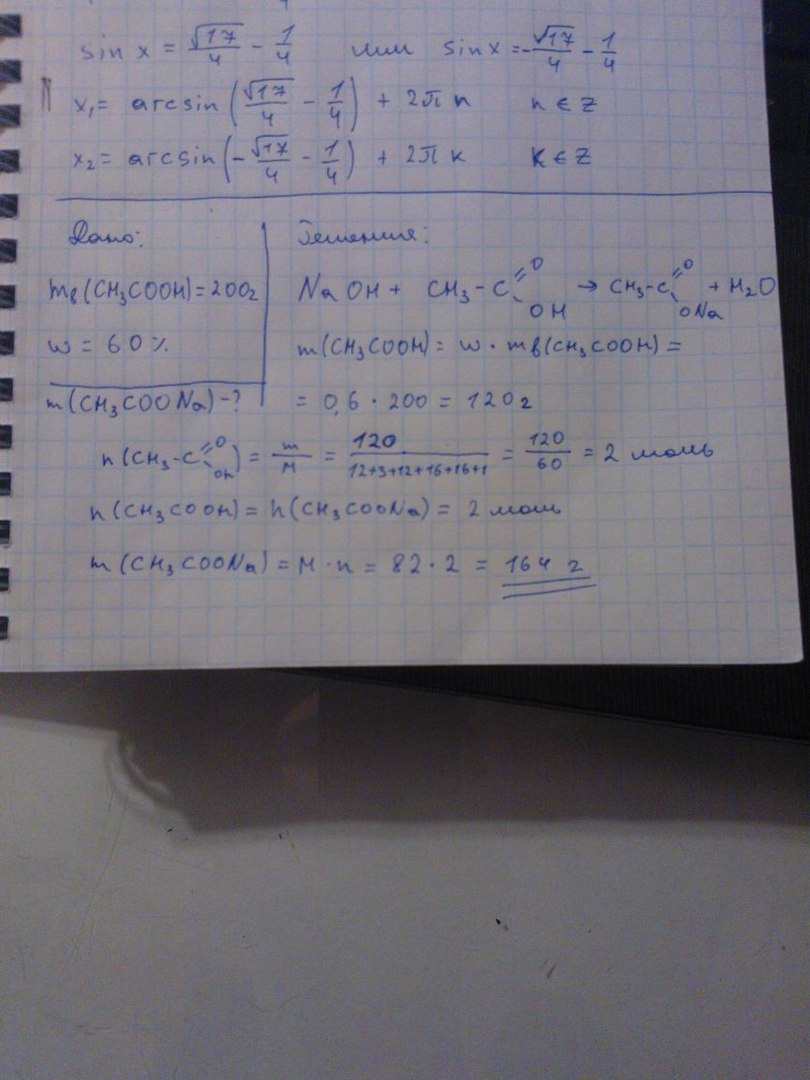 sin x = √17/4 - 1/4 или sin x = -√17/4 - 1/4
x₁ = arcsin (√17/4 - 1/4) + 2πn n ∈ Z
x₂ = arcsin (-√17/4 - 1/4) + 2πk k ∈ Z
Дано:
mв(CH₃COOH) = 200г
w = 60%
m(CH₃COONa) - ?
Решение:
NaOH + CH₃-C(=O)OH → CH₃-C(=O)ONa + H₂O
m(CH₃COOH) = w · mв(CH₃COOH) =
= 0,6 · 200 = 120г
n(CH₃-C(=O)OH) = m/M = 120/(12+3+12+16+16+1) = 120/60 = 2 моль
n(CH₃COOH) = n(CH₃COONa) = 2 моль
m(CH₃COONa) = M · n = 82 · 2 = 164 г